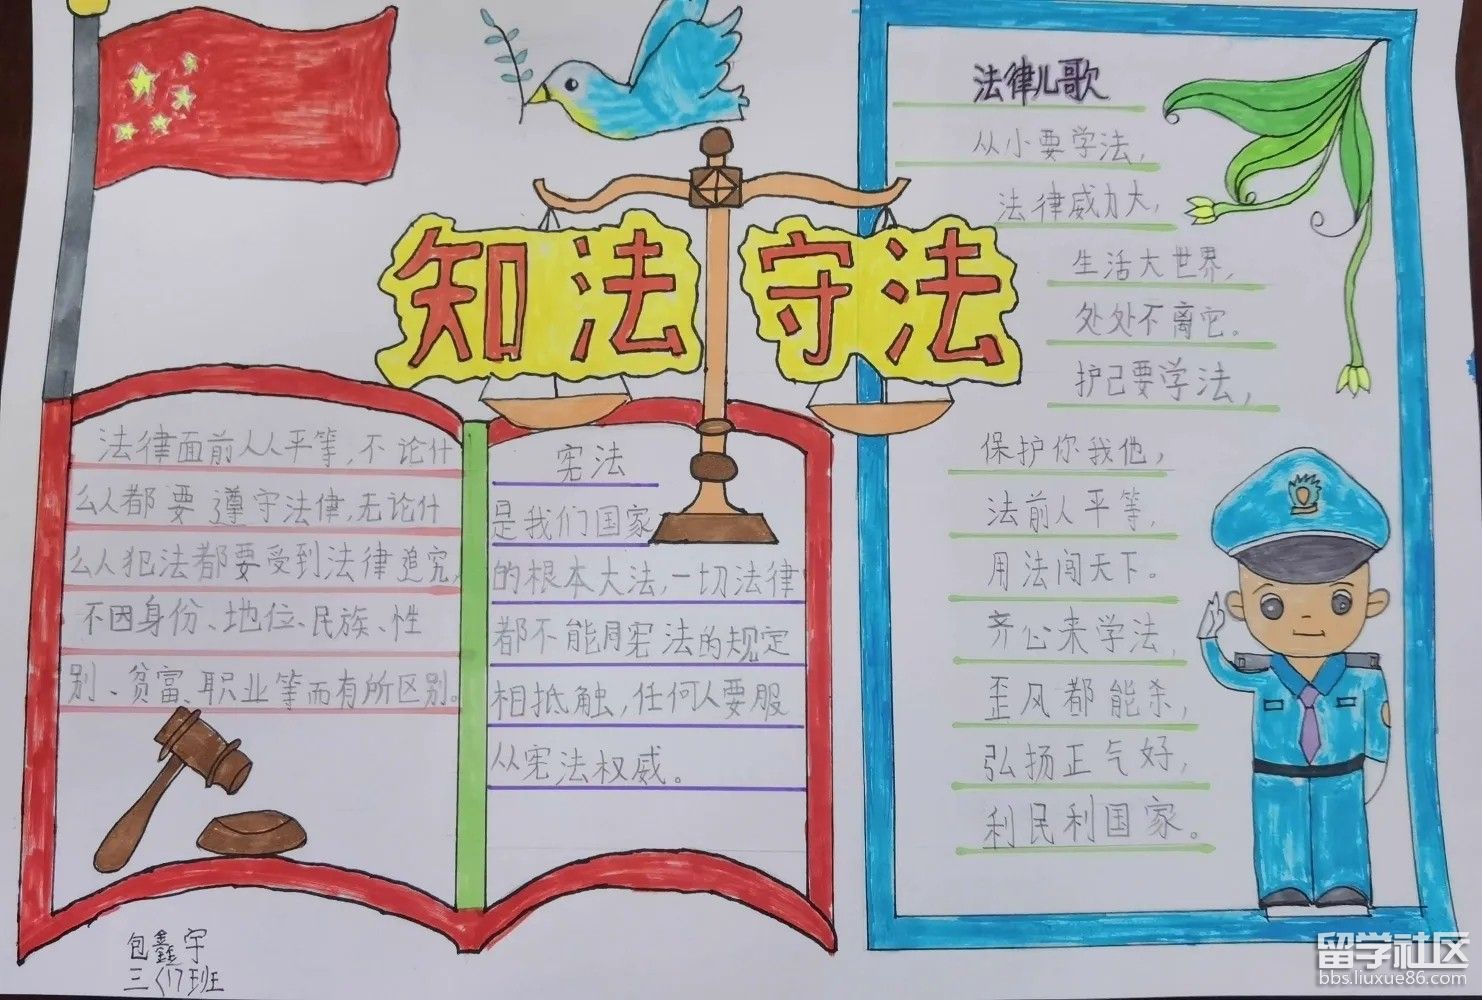 知法守法
法律面前人人平等,不论什
么人都要遵守法律,无论什
么人犯法都要受到法律追究,
不因身份、地位、民族、性
别、贫富、职业等而有所区别。
宪法
是我们国家
的根本大法,一切法律
都不能用宪法的规定
相抵触,任何人要服
从宪法权威。
法律儿歌
从小要学法,
法律威力大,
生活大世界,
处处不离它。
护己要学法,
保护你我他,
法前人平等,
用法闯天下。
齐心来学法,
歪风都能杀,
弘扬正气好,
利民利国家。
包鑫宇
三〈1〉班
留学社区
bbs.liuxue86.com